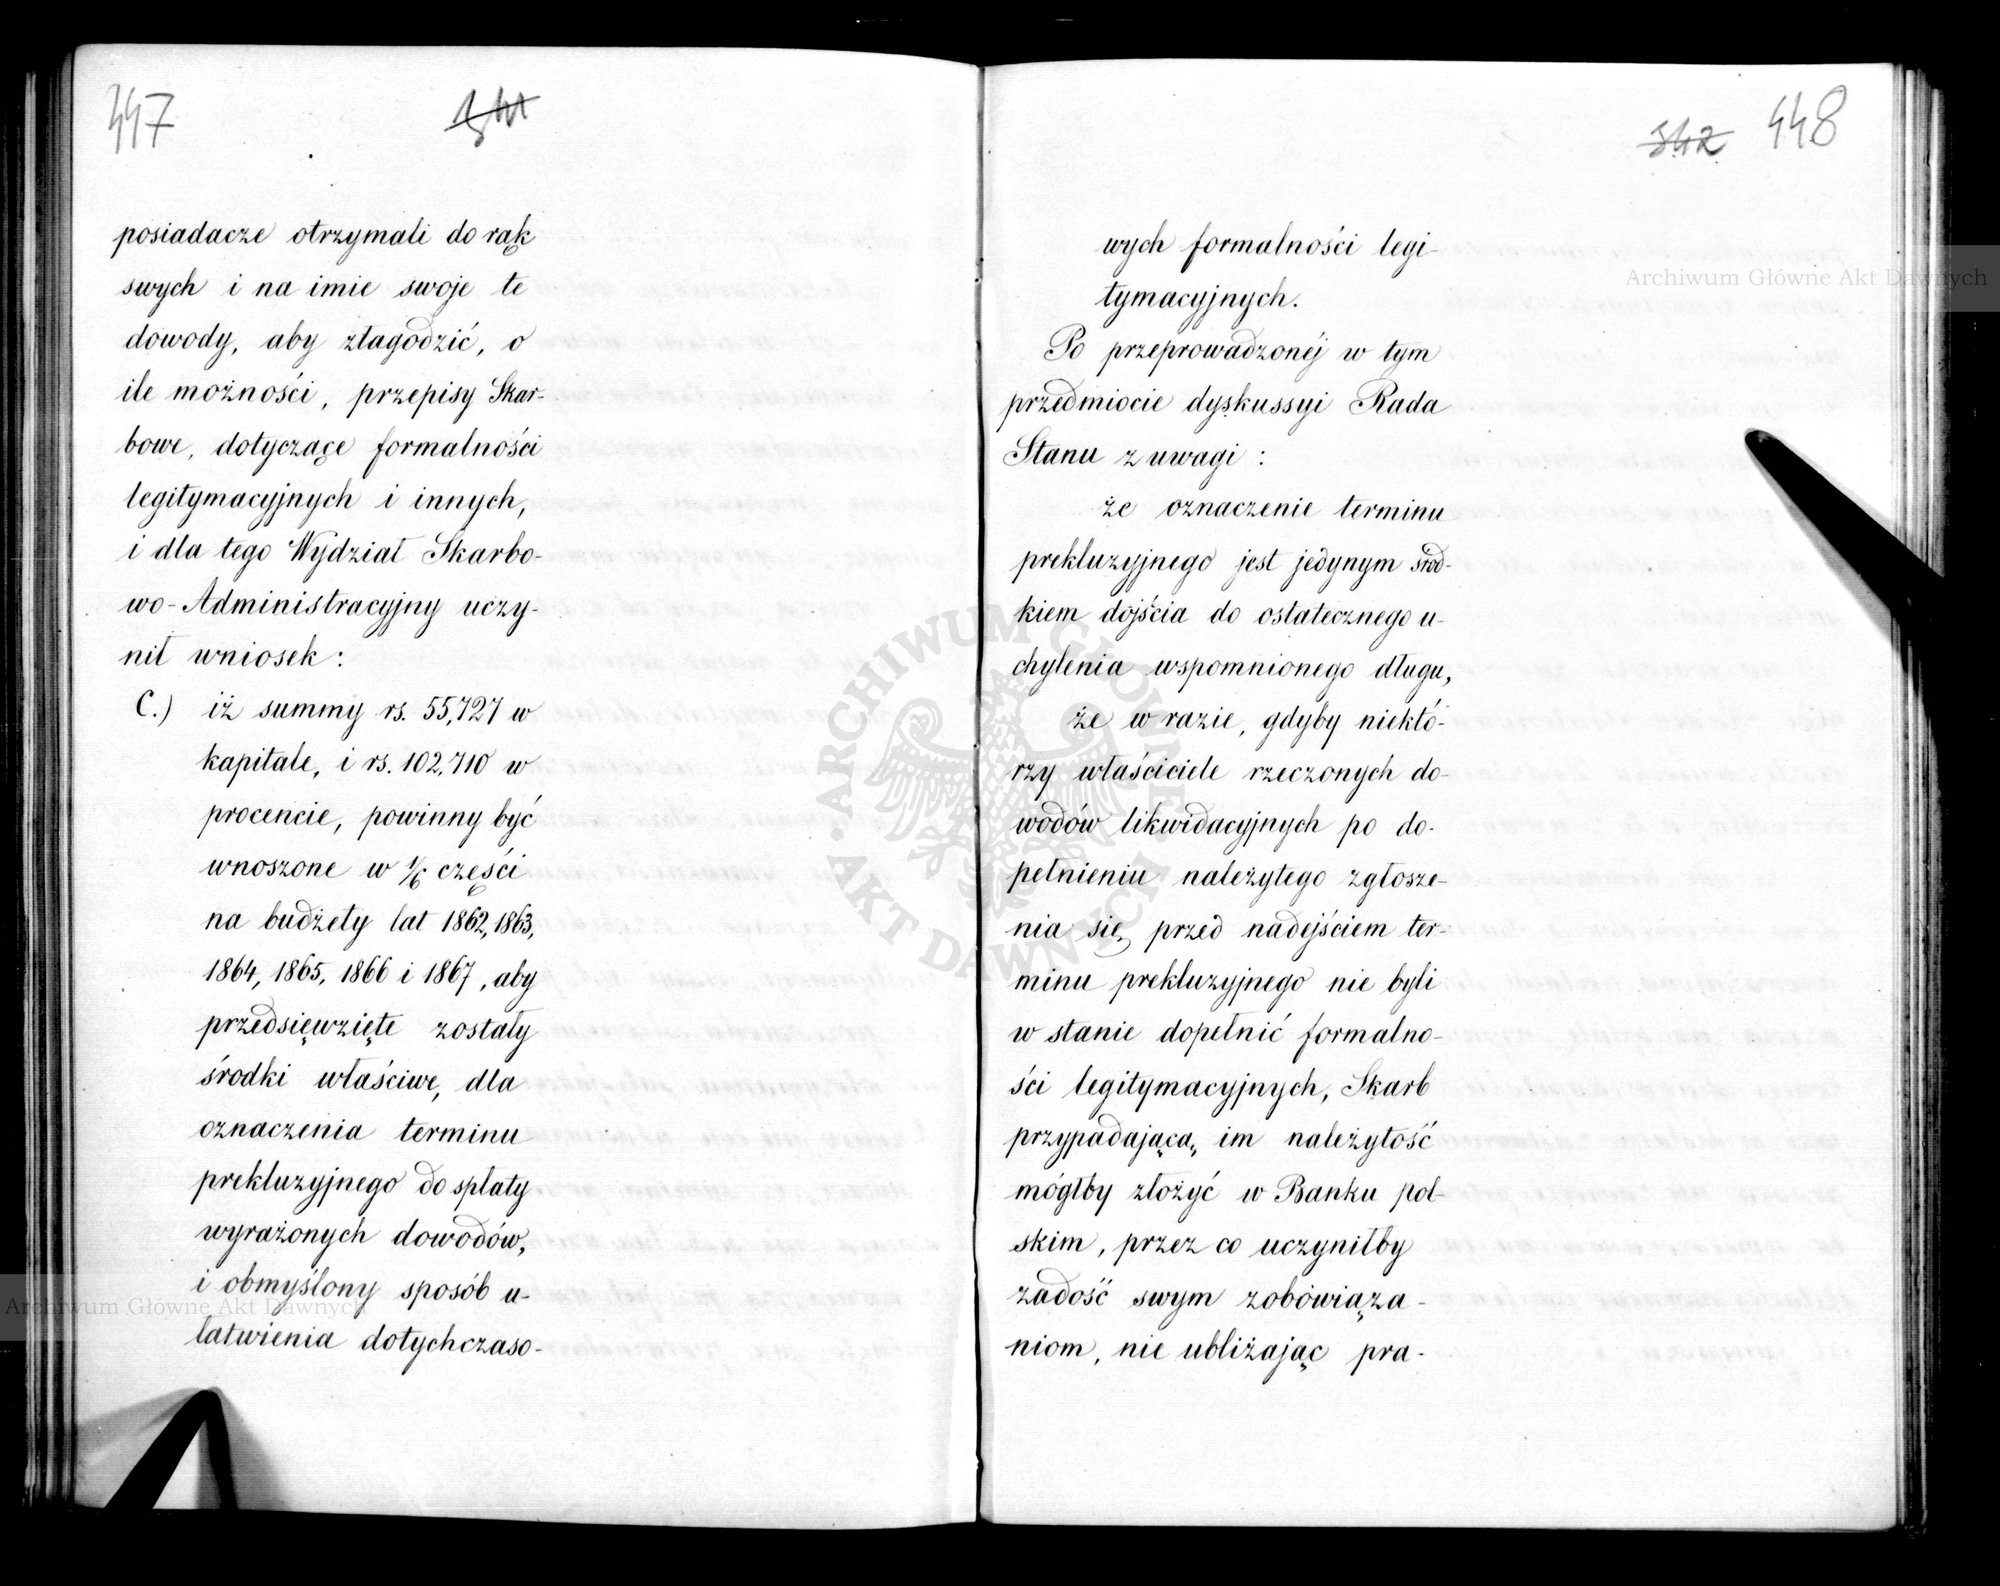 447
posiadacze otrzymali do rąk
swych i na imie swoje te
dowody, aby złagodzić, o
ile możności, przepisy Skar-
bowe, dotyczące formalności
legitymacyjnych i innych,
i dla tego Wydział Skarbo-
wo-Administracyjny uczy-
nił wniosek:
C.) iż summy rs. 55,727 w
kapitale, i rs. 102,710 w
procencie, powinny być
wnoszone w 1/6 części
na budżety lat 1862, 1863,
1864, 1865, 1866 i 1867, aby
przedsięwzięte zostały
środki właściwe, dla
oznaczenia terminu
prekluzyjnego do spłaty
wyrażonych dowodów,
i obmyślony sposób u-
łatwienia dotychczaso-
Archiwum Główne Akt Dawnych
542 448
wych formalności legi-
tymacyjnych.
Po przeprowadzonéj w tym
przedmiocie dyskussyi Rada
Stanu z uwagi:
że oznaczenie terminu
prekluzyjnego jest jedynym środ-
kiem dojścia do ostatecznego u-
chylenia wspomnionego długu,
że w razie, gdyby niektó-
rzy właściciele rzeczonych do-
wodów likwidacyjnych po do-
pełnieniu należytego zgłosze-
nia się, przed nadejściem ter-
minu prekluzyjnego nie byli
w stanie dopełnić formalno-
ści legitymacyjnych, Skarb
przypadającą im należytość
mógłby złożyć w Banku pol-
skim, przez co uczyniłby
zadość swym zobowiąza-
niom, nie ubliżając pra-
Archiwum Główne Akt Dawnych
ARCHIWUM GŁÓWNE
AKT DAWNYCH